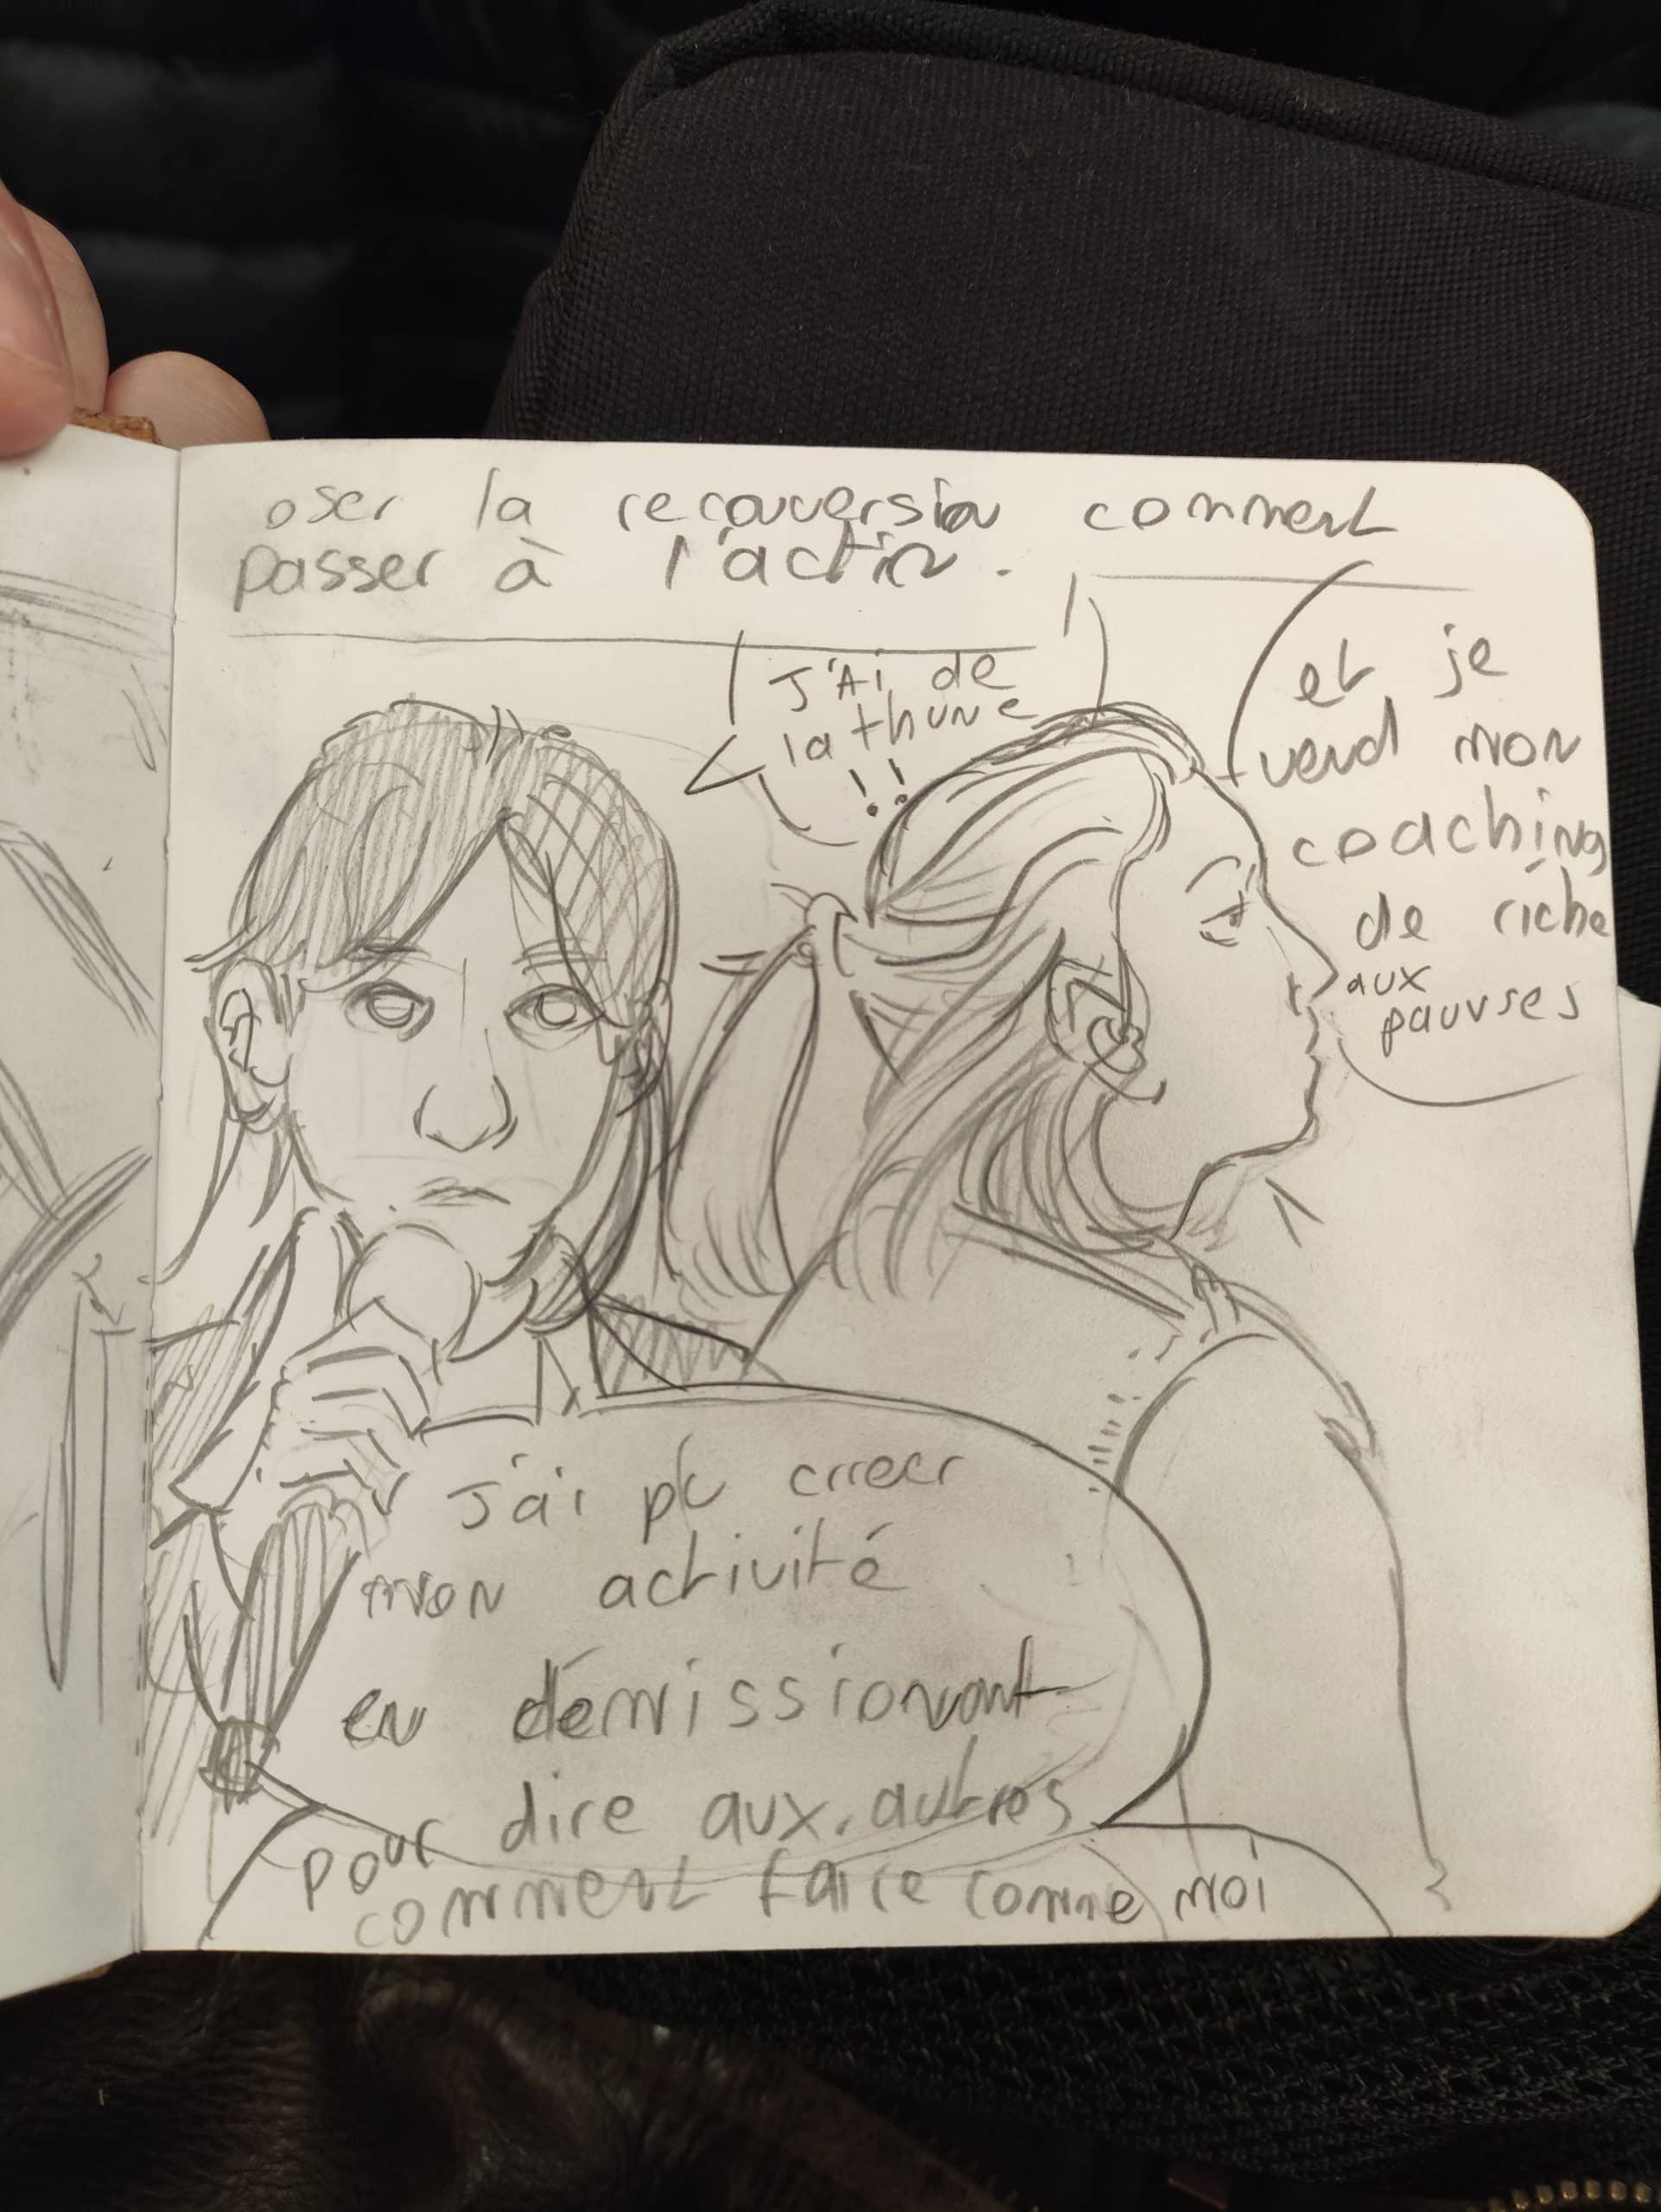 oser la reconversion comment
passer à l'action.
J'Ai de
la thune
!!
et je
vend mon
coaching
de riche
aux
pauvres
J'ai pu créer
mon activité
en démissionant
pour dire aux autres
comment faire comme moi